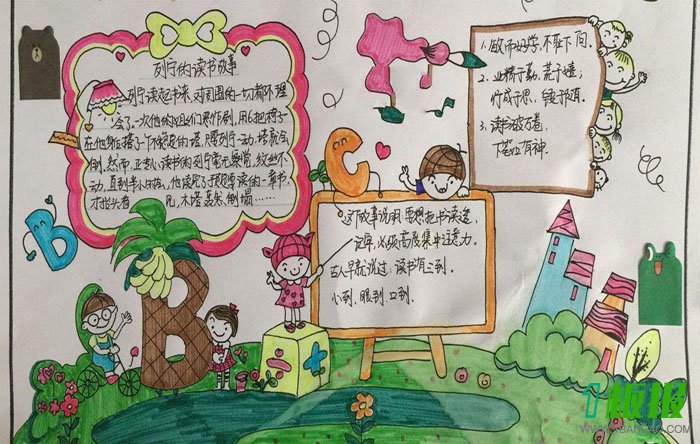 列宁的读书故事
列宁读起书来,对周围的一切都不理
会了。一次他的姐姐们恶作剧,用6把椅子
在他身后搭了一个不稳定的塔,只要列宁一动,塔就会
倒,然而,正专心读书的列宁毫无察觉,纹丝不
动,直到半小时后,他读完了预定要读的一章书,
才抬头看 见,木塔轰然倒塌……
1.敏而好学,不耻下问。
2.业精于勤,荒于嬉;
行成于思,毁于随。
3.读书破万卷,
下笔如有神。
这个故事说明:要想把书读透,
记牢,必须高度集中注意力。
古人早就说过:读书有三到,
心到、眼到、口到。
C
B
B
1板报